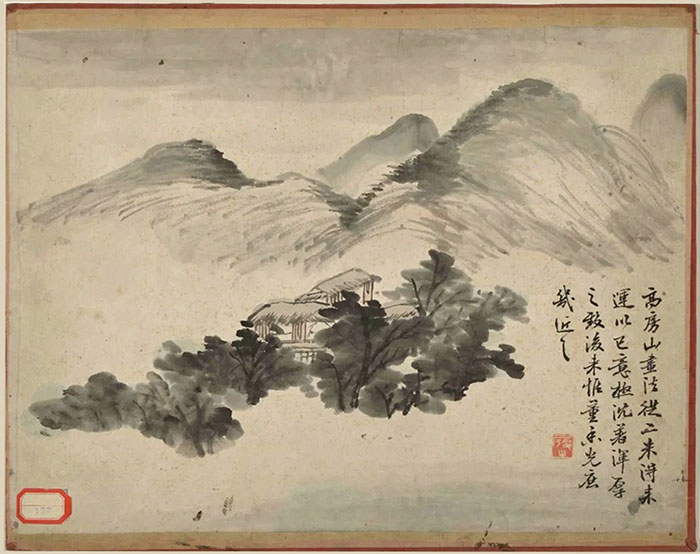 高房山畫法從二米得来
運以己意極沈著渾厚
之致後来惟董香光庶
幾近之